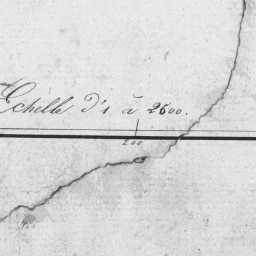 Echelle d'1 à 2500.
200